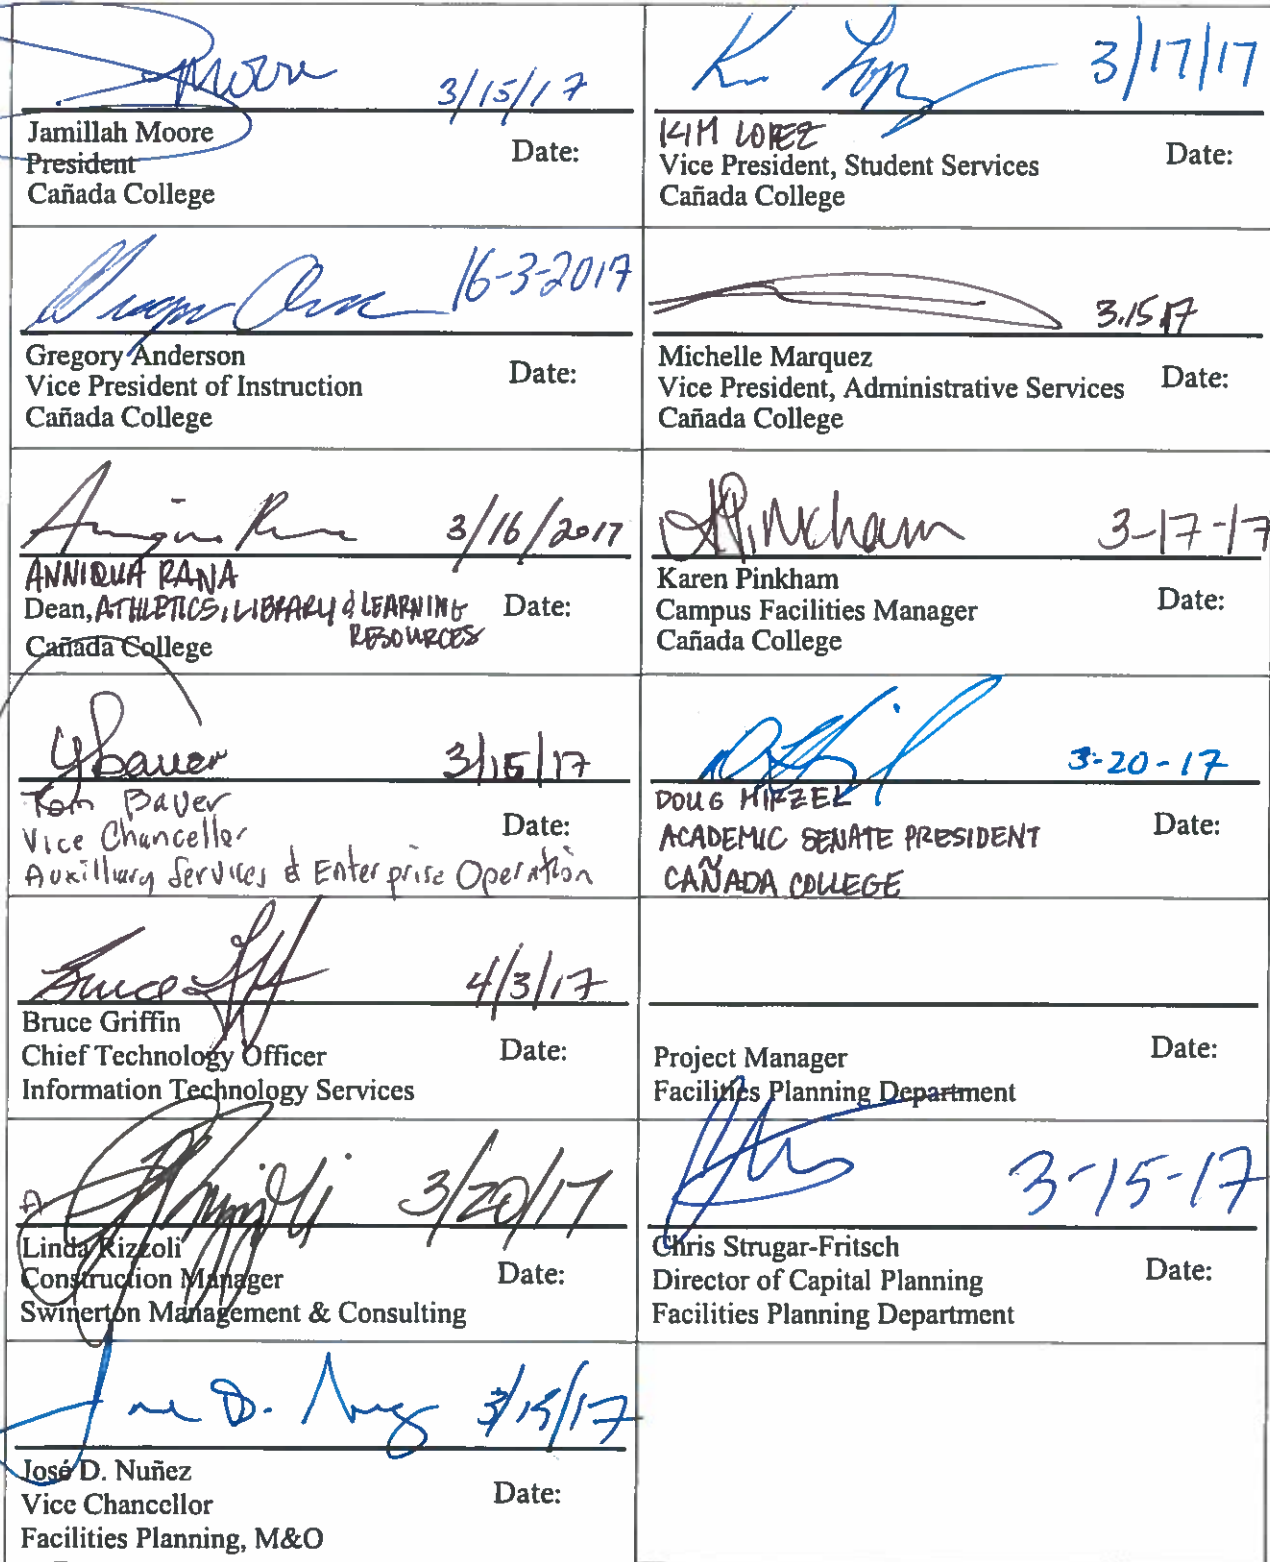 Moore 3/15/17
Jamillah Moore
President
Cañada College
Date:
3/17/17
KIM LOPEZ
Vice President, Student Services
Cañada College
Date:
16-3-2017
Gregory Anderson
Vice President of Instruction
Cañada College
Date:
3.15.17
Michelle Marquez
Vice President, Administrative Services
Cañada College
Date:
3/16/2017
ANNIQUA RANA
Dean, ATHLETICS, LIBRARY & LEARNING
RESOURCES
Cañada College
Date:
3-17-17
Karen Pinkham
Campus Facilities Manager
Cañada College
Date:
3/15/17
Tom Bauer
Vice Chancellor
Auxilliary Services & Enterprise Operation
Date:
3-20-17
DOUG HIRZEL
ACADEMIC SENATE PRESIDENT
CAÑADA COLLEGE
Date:
Bruce 4/3/17
Bruce Griffin
Chief Technology Officer
Information Technology Services
Date:
Project Manager
Facilities Planning Department
Date:
3/20/17
Linda Rizzoli
Construction Manager
Swinerton Management & Consulting
Date:
3-15-17
Chris Strugar-Fritsch
Director of Capital Planning
Facilities Planning Department
Date:
3/15/17
José D. Nuñez
Vice Chancellor
Facilities Planning, M&O
Date: